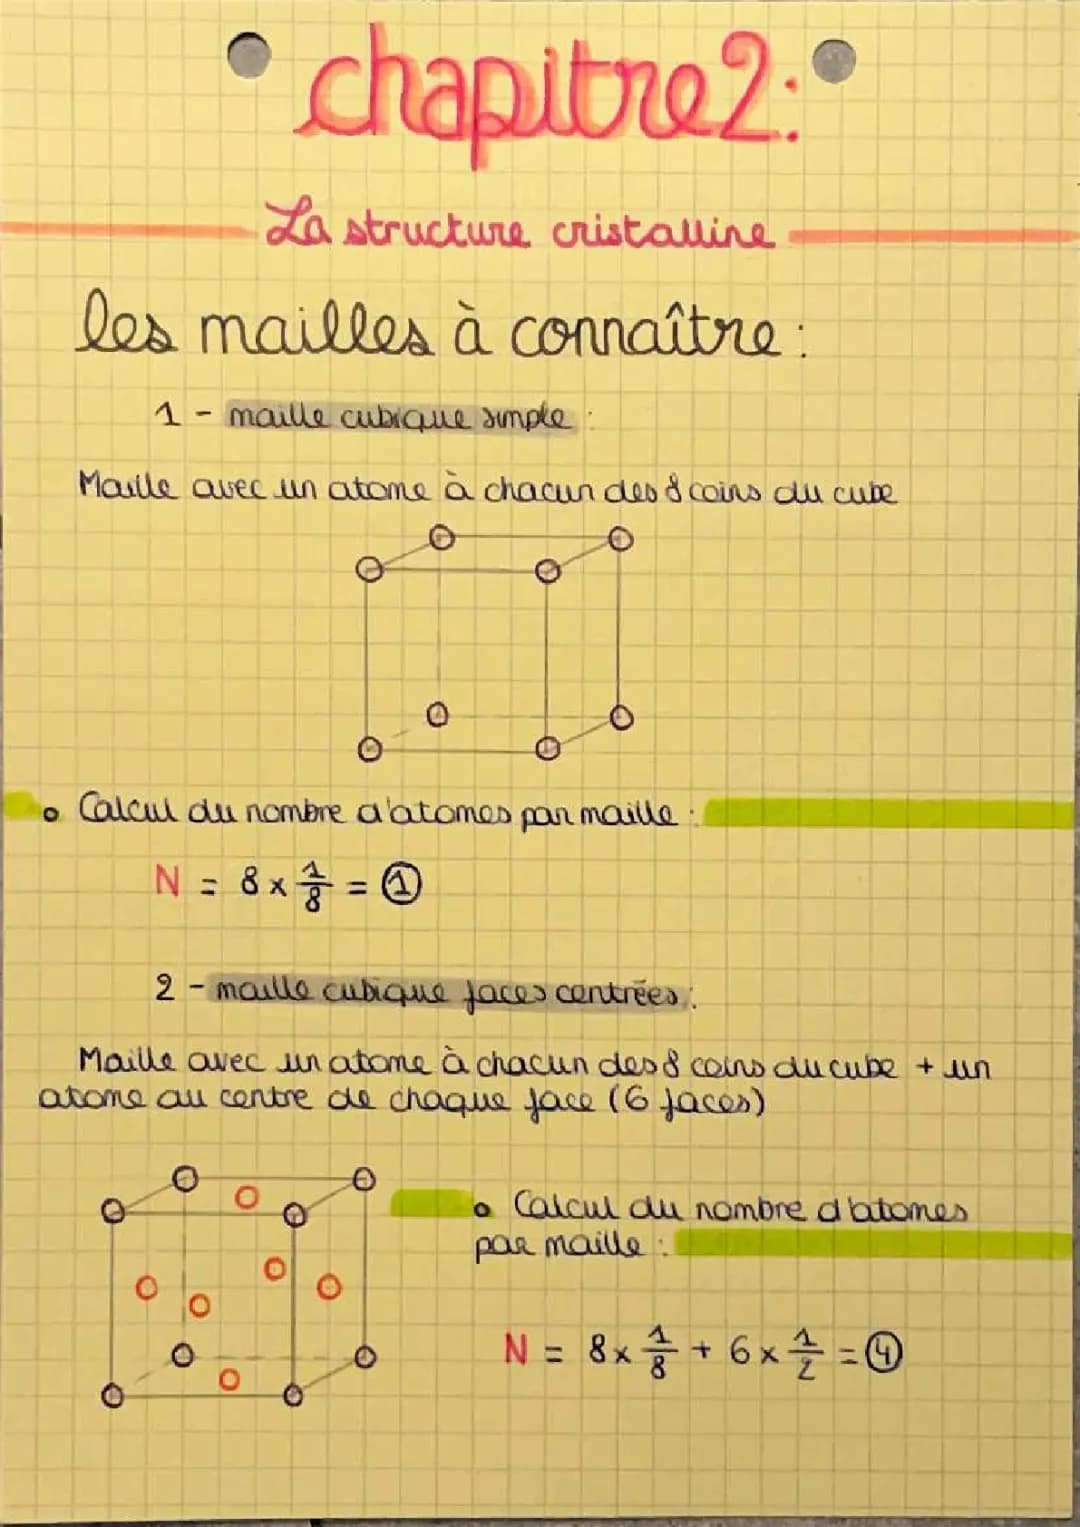 chapitre 2:
La structure cristalline
les mailles à connaître :
1 - maille cubique simple :
Maille avec un atome à chacun des 8 coins du cube
Calcul du nombre d'atomes par maille :
N = 8 x 1/8 = 1
2 - maille cubique faces centrées :
Maille avec un atome à chacun des 8 coins du cube + un
atome au centre de chaque face (6 faces)
Calcul du nombre d'atomes
par maille :
N = 8 x 1/8 + 6 x 1/2 = 4